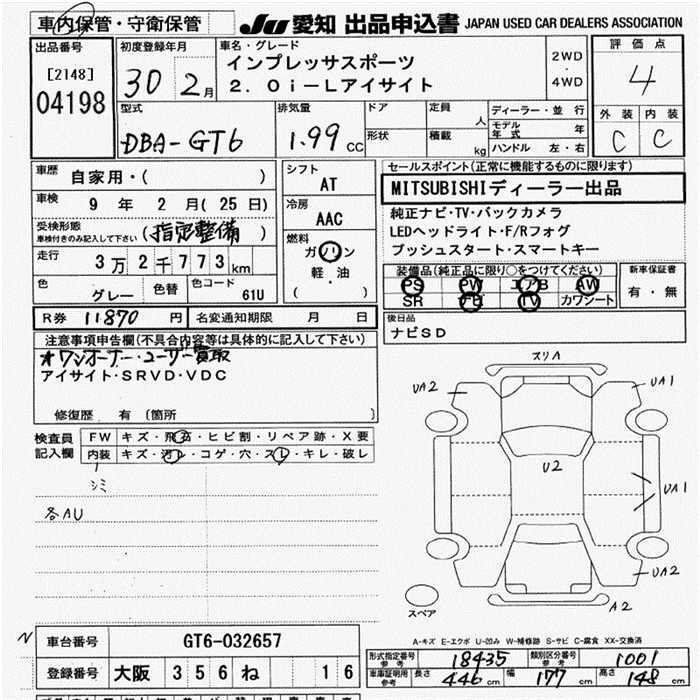 車内保管・守衛保管
JU 愛知 出品申込書 JAPAN USED CAR DEALERS ASSOCIATION
出品番号
[2148]
04198
初度登録年月
30 2月
車名・グレード
インプレッサスポーツ
2.0i-Lアイサイト
2WD
・
4WD
評価点
4
外装 内装
C C
型式
DBA-GT6
排気量
1.99 CC
ドア
形状
定員 人
積載 kg
ディーラー・並行
モデル年式 年
ハンドル 左・右
車歴 自家用・( )
車検 9年 2月(25日)
受検形態
車検付きのみ記入して下さい (指定整備)
走行 3万2千773km
色 グレー 色替 色コード 61U
シフト
AT
冷房
AAC
燃料
ガソリン
軽・油
( )
セールスポイント(正常に機能するものに限ります)
MITSUBISHIディーラー出品
純正ナビ・TV・バックカメラ
LEDヘッドライト・F/Rフォグ
プッシュスタート・スマートキー
装備品(純正品に限り○をつけてください)
PS PW エアB AW
SR ナビ TV カワシート
新車保証書
有・無
R券 11870円 名変通知期限 月 日
後日品
ナビSD
注意事項申告欄(不具合内容等は具体的に記入して下さい)
★ワンオーナー・ユーザー買取
アイサイト・SRVD・VDC
修復歴 有 (箇所 )
検査員
記入欄
FW キズ・飛石・ヒビ割・リペア跡・X要
内装 キズ・汚レ・コゲ・穴・スレ・キレ・破レ
シミ
各AU
スリA
UA2
UA1
U2
UA1
UA2
A2
スペア
A-キズ E-エクボ U-凹み W-補修跡 S-サビ C-腐食 XX-交換済
車台番号 GT6-032657
登録番号 大阪 356 ね 16
形式指定番号
参考 18435
類別区分番号
参考 1001
車庫証明用
参考 長さ 446cm 幅 177cm 高さ 148cm